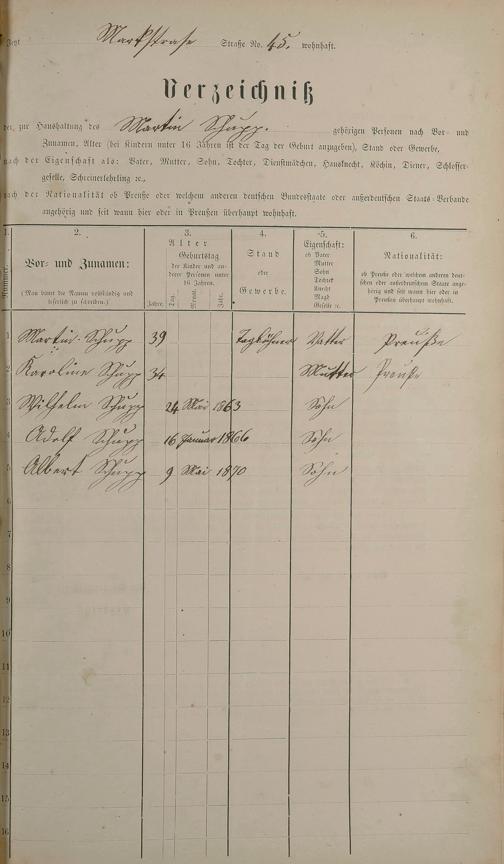 Jetzt Markstrase Straße No. 45. wohnhaft.
Verzeichniß
der, zur Haushaltung des Martin Schupp. gehörigen Personen nach Vor- und
Zunamen, Alter (bei Kindern unter 16 Jahren ist der Tag der Geburt anzugeben), Stand oder Gewerbe,
nach der Eigenschaft als: Vater, Mutter, Sohn, Tochter, Dienstmädchen, Hausknecht, Köchin, Diener, Schlosser-
geselle, Schreinerlehrling ꝛc.,
nach der Nationalität ob Preuße oder welchem anderen deutschen Bundesstaate oder außerdeutschen Staats-Verbande
angehörig und seit wann hier oder in Preußen überhaupt wohnhaft.
1. 2. 3. 4. 5. 6.
Nummer.
Vor- und Zunamen:
(Man bittet die Namen vollständig und
leserlich zu schreiben.)
Alter
Geburtstag
der Kinder und an-
derer Personen unter
16 Jahren.
Jahre. Tag. Monat. Jahr.
Stand
oder
Gewerbe.
Eigenschaft:
ob Vater
Mutter
Sohn
Tochter
Knecht
Magd
Geselle ꝛc.
Nationalität:
ob Preuße oder welchem anderen deut-
schen oder außerdeutschen Staate ange-
hörig und seit wann hier oder in
Preußen überhaupt wohnhaft.
1 Martin Schupp 39 Taglöhner Vatter Preuße
2 Karoline Schupp 34 Mutter Preuße
3 Wilhelm Schupp 24 Mai 1863 Sohn
4 Adolf Schupp 16 Januar 1866 Sohn
5 Albert Schupp 9 Mai 1870 Sohn
6
7
8
9
10
11
12
13
14
15
16